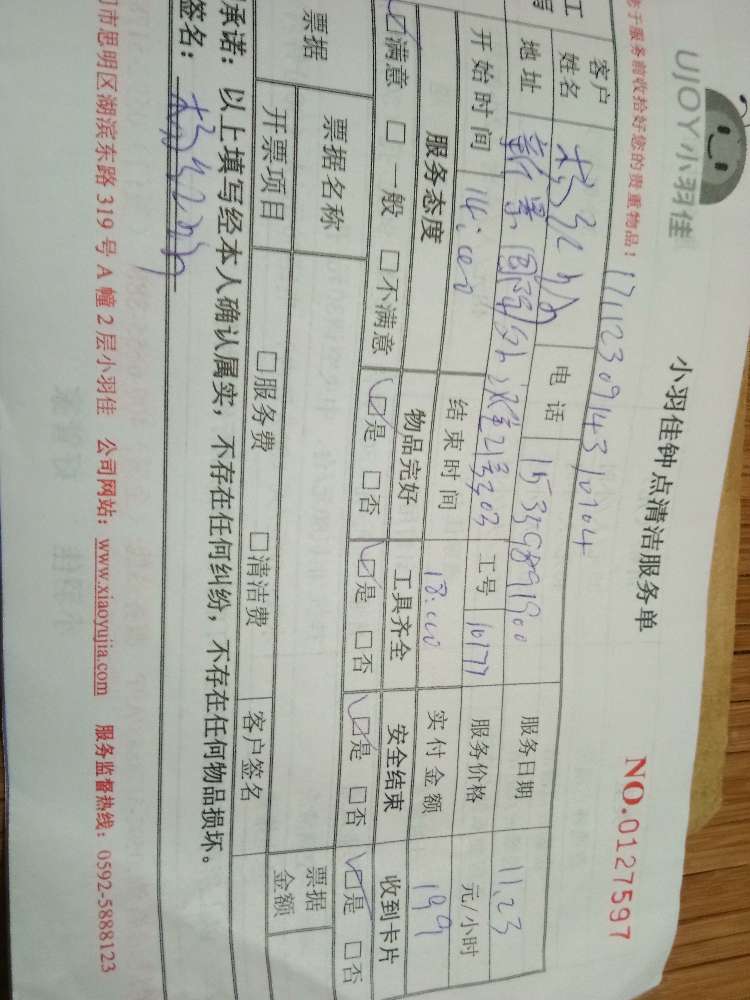 UJOY小羽佳
小羽佳钟点清洁服务单
NO.0127597
于服务前收拾好您的贵重物品!
1711230914310704
客户
姓名
电话
服务日期 11.23
地址
工号 10177
服务价格 元/小时
开始时间 14:00
结束时间 18:00
实付金额 199
服务态度 物品完好 工具齐全 安全结束 收到卡片
☑满意 □一般 □不满意 ☑是 □否 ☑是 □否 ☑是 □否 ☑是 □否
票据
票据名称
票据
金额
开票项目 □服务费 □清洁费 客户签名
承诺:以上填写经本人确认属实,不存在任何纠纷,不存在任何物品损坏。
签名:
市思明区湖滨东路 319 号 A 幢 2 层小羽佳 公司网站:www.xiaoyujia.com 服务监督热线:0592-5888123